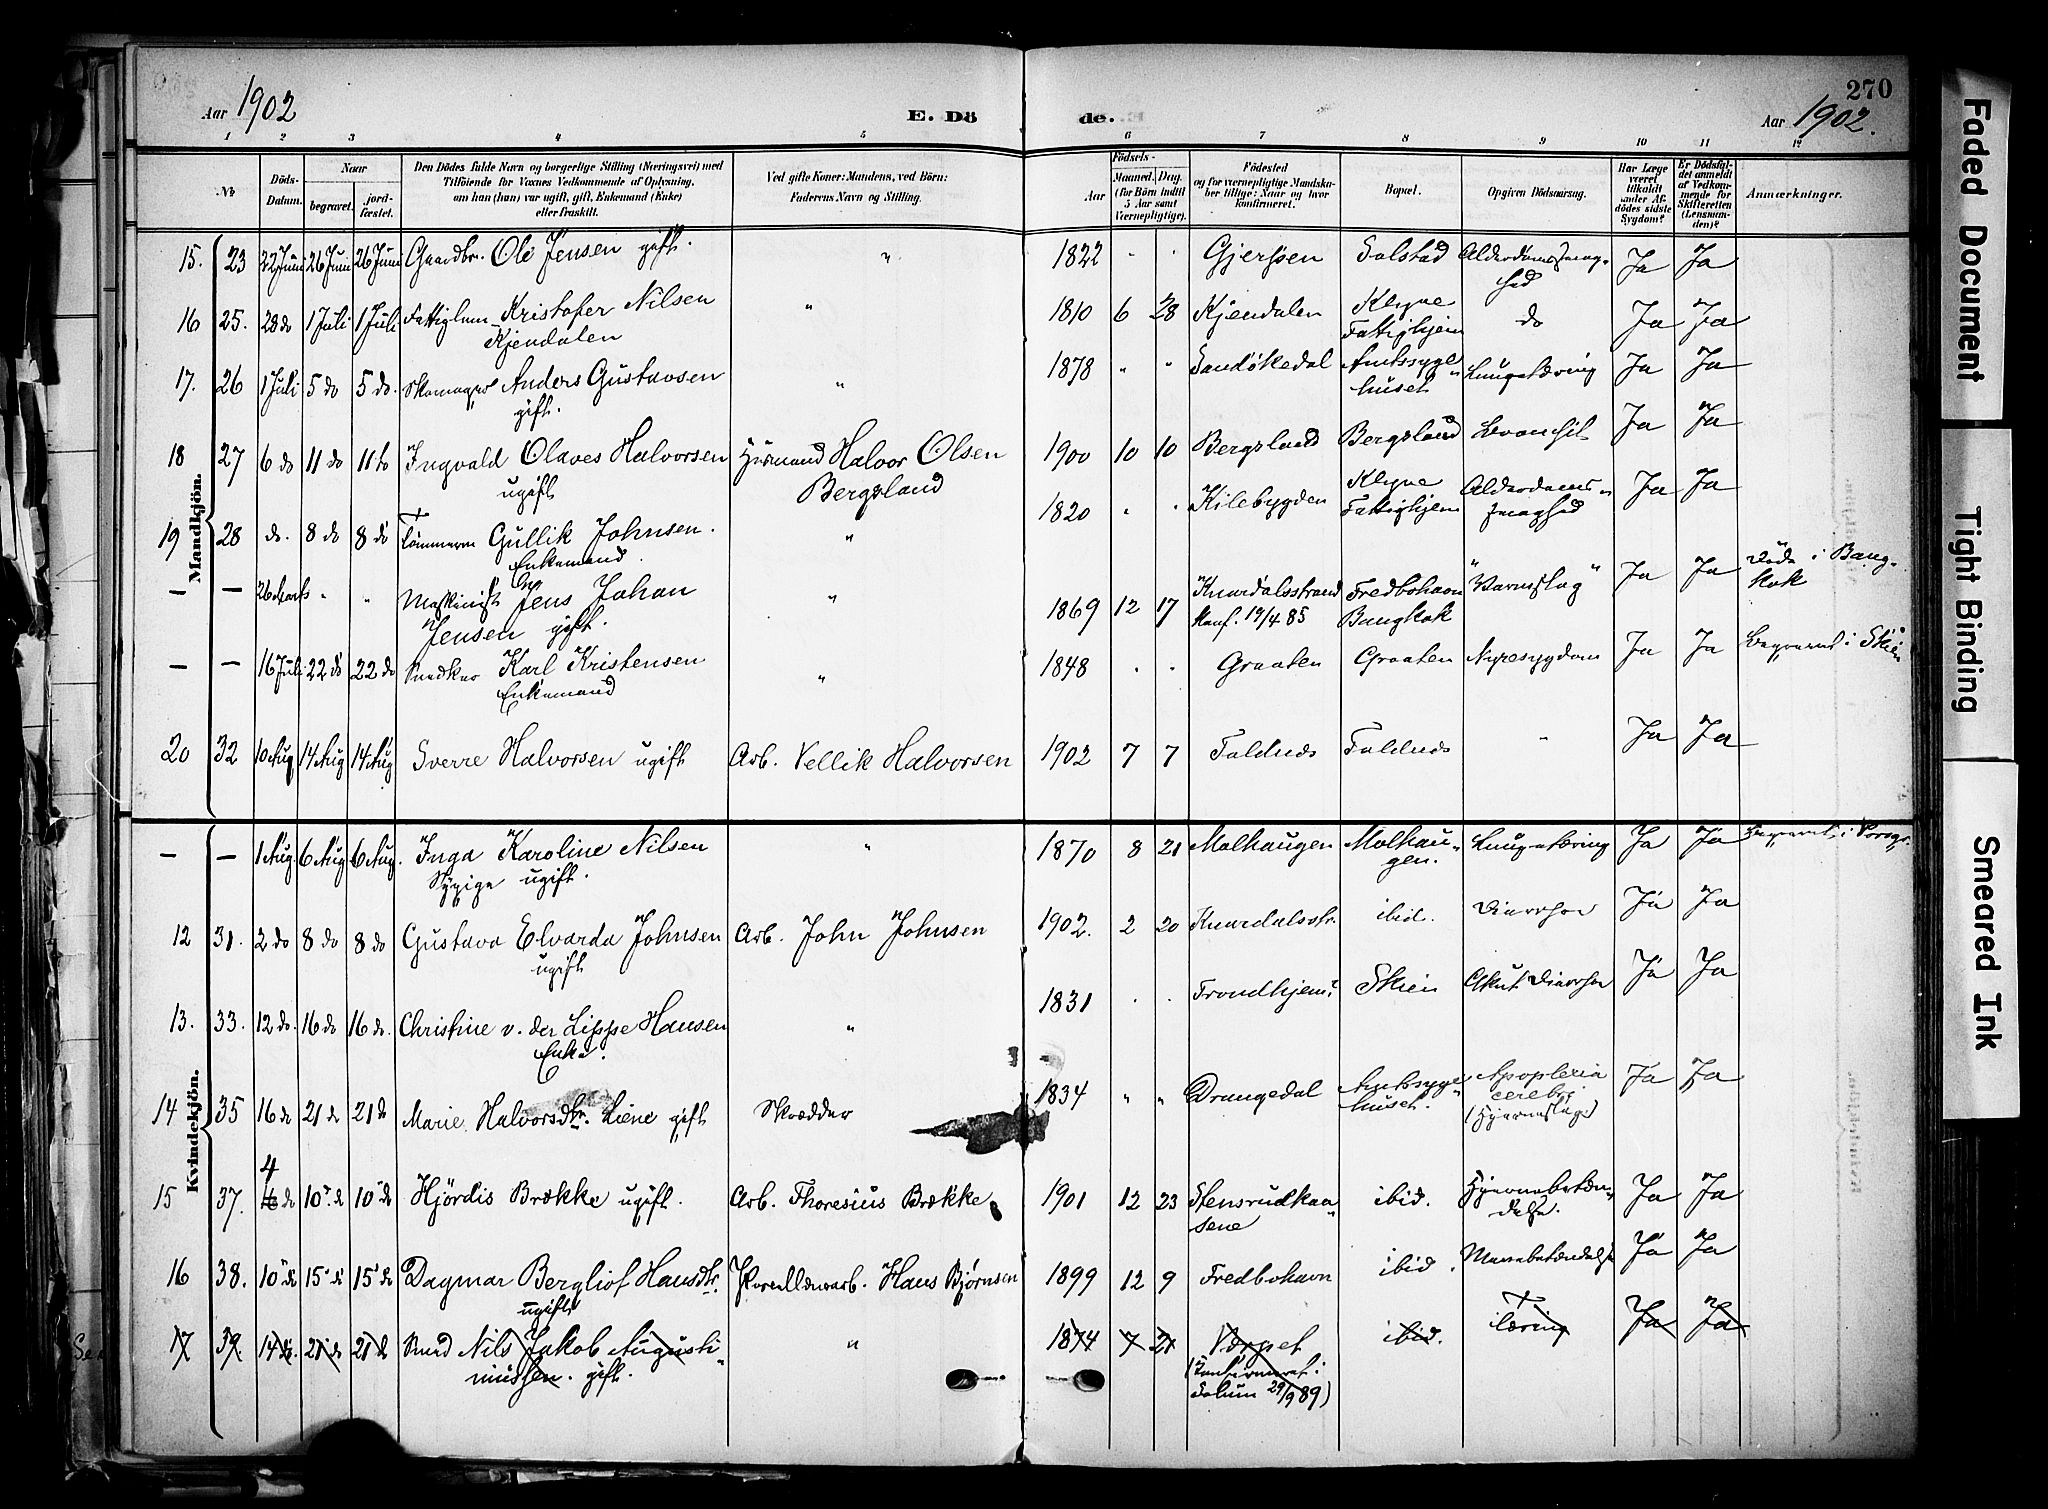 270
Aar 1902
E. Dö
de.
Aar 1902.
1 2 3 4 5 6 7 8 9 10 11 12
No
Döds-Datum.
Naar
begravet.
jord-fæstet.
Den Dödes fulde Navn og borgerlige Stilling (Næringsvei) med
Tilföiende for Voxnes Vedkommende af Oplysning,
om han (hun) var ugift, gift, Enkemand (Enke)
eller fraskilt.
Ved gifte Koner: Mandens, ved Börn:
Faderens Navn og Stilling.
Aar
Födsels-
Maaned. Dag.
(for Börn indtil
5 Aar samt
Værnepligtige).
Födested
og for værnepligtige Mandska-
ber tillige: Naar og hvor
konfirmeret.
Bopæl.
Opgiven Dödsaarsag.
Har Læge
været
tilkaldt
under Af-
dödes sidste
Sygdom?
Er Dödsfal-
det anmeldt
af Vedkom-
mende for
Skifteretten
(Lensman-
den)?
Anmærkninger.
Mandkjön.
15. 23 22 Juni 26 Juni 26 Juni Gaardbr. Ole Jensen gift. " 1822 " " Gjerpen Solstad Alderdomssvag-
hed Ja Ja
16 25. 28 do 1 Juli 1 Juli Fattiglem Kristofer Nilsen " 1810 6 28 Kjendalen Klyve do Ja Ja
Kjendalen Fattighjem
17. 26 1 Juli 5 do 5 do. Skomager Anders Gustavsen " 1878 " " Sandökedal Amtssyge- Lungetæring Ja Ja
gift. huset
18 27 6 do 11 do 11 do Ingvald Olaves Halvorsen Husmand Halvor Olsen 1900 10 10 Bergsland Bergsland Ja Ja
ugift Bergsland
19 28 do. 8 do 8 do Tömmerm Gullik Johnsen. " 1820 " " Kilebygden Klyve Alderdoms- Ja Ja
Enkemand. Fattighjem svaghed
— — 26 Marts " " Maskinist Jens Johan " 1869 12 17 Knardalsstrand Fredbohavn "Varmslag" Ja Ja Döde i Bang-
Jensen gift. Konf. 19/4 85 Bangkok kok
— — 16 Juli 22 do 22 do Snedker Karl Kristensen " 1848 " " Graaten Graaten Nyresygdom Ja Ja Begravet i Skien
Enkemand
20 32 10 Aug 14 Aug 14 Aug Sverre Halvorsen ugift Arb. Vellik Halvorsen 1902 7 7 Foldnes Foldnes " Ja Ja
Kvindekjön.
— — 1 Aug 6 Aug 6 Aug. Inga Karoline Nilsen " 1870 8 21 Molhaugen Molhau- Lungetæring Ja Ja Begravet i Porsgr.
Sypige ugift. gen.
12 31. 2 do 8 do 8 do Gustava Elvarda Johnsen Arb. John Johnsen 1902. 2 20 Knardalsstr. ibid. Diarrhoe Ja Ja
ugift
13. 33. 12 do. 16 do 16 do. Christine v. der Lippe Hansen " 1831 " " Trondhjem Skien Akut Diarrhoe Ja Ja
Enke.
14 35 16 do 21 do 21 do Marie Halvorsdtr. Liene gift Skrædder 1834 " " Drangedal Amtssyge- Apoplexia Ja Ja
huset. cerebri
(Hjerneslag)
15 37. 4 do 10 do 10 do Hjördis Brække ugift. Arb. Thoresius Brække 1901 12 23 Stensrudkaa- ibid. Hjernebetæn- Ja Ja
sene delse.
16 38. 10 do 15 do 15 do Dagmar Bergliof Hansdtr. Porcellænsarb. Hans Bjørnsen 1899 12 9 Fredbohavn ibid. Mavebetændelse Ja Ja
ugift
17 39. 14 do. 21 do 21 do Smed Nils Jakob Augusti- " 1874 7 21 Værpet ibid. Tæring Ja Ja
nussen. gift. (Konfirmeret i
Solum 29/9 89)
Faded Document
Tight Binding
Smeared Ink